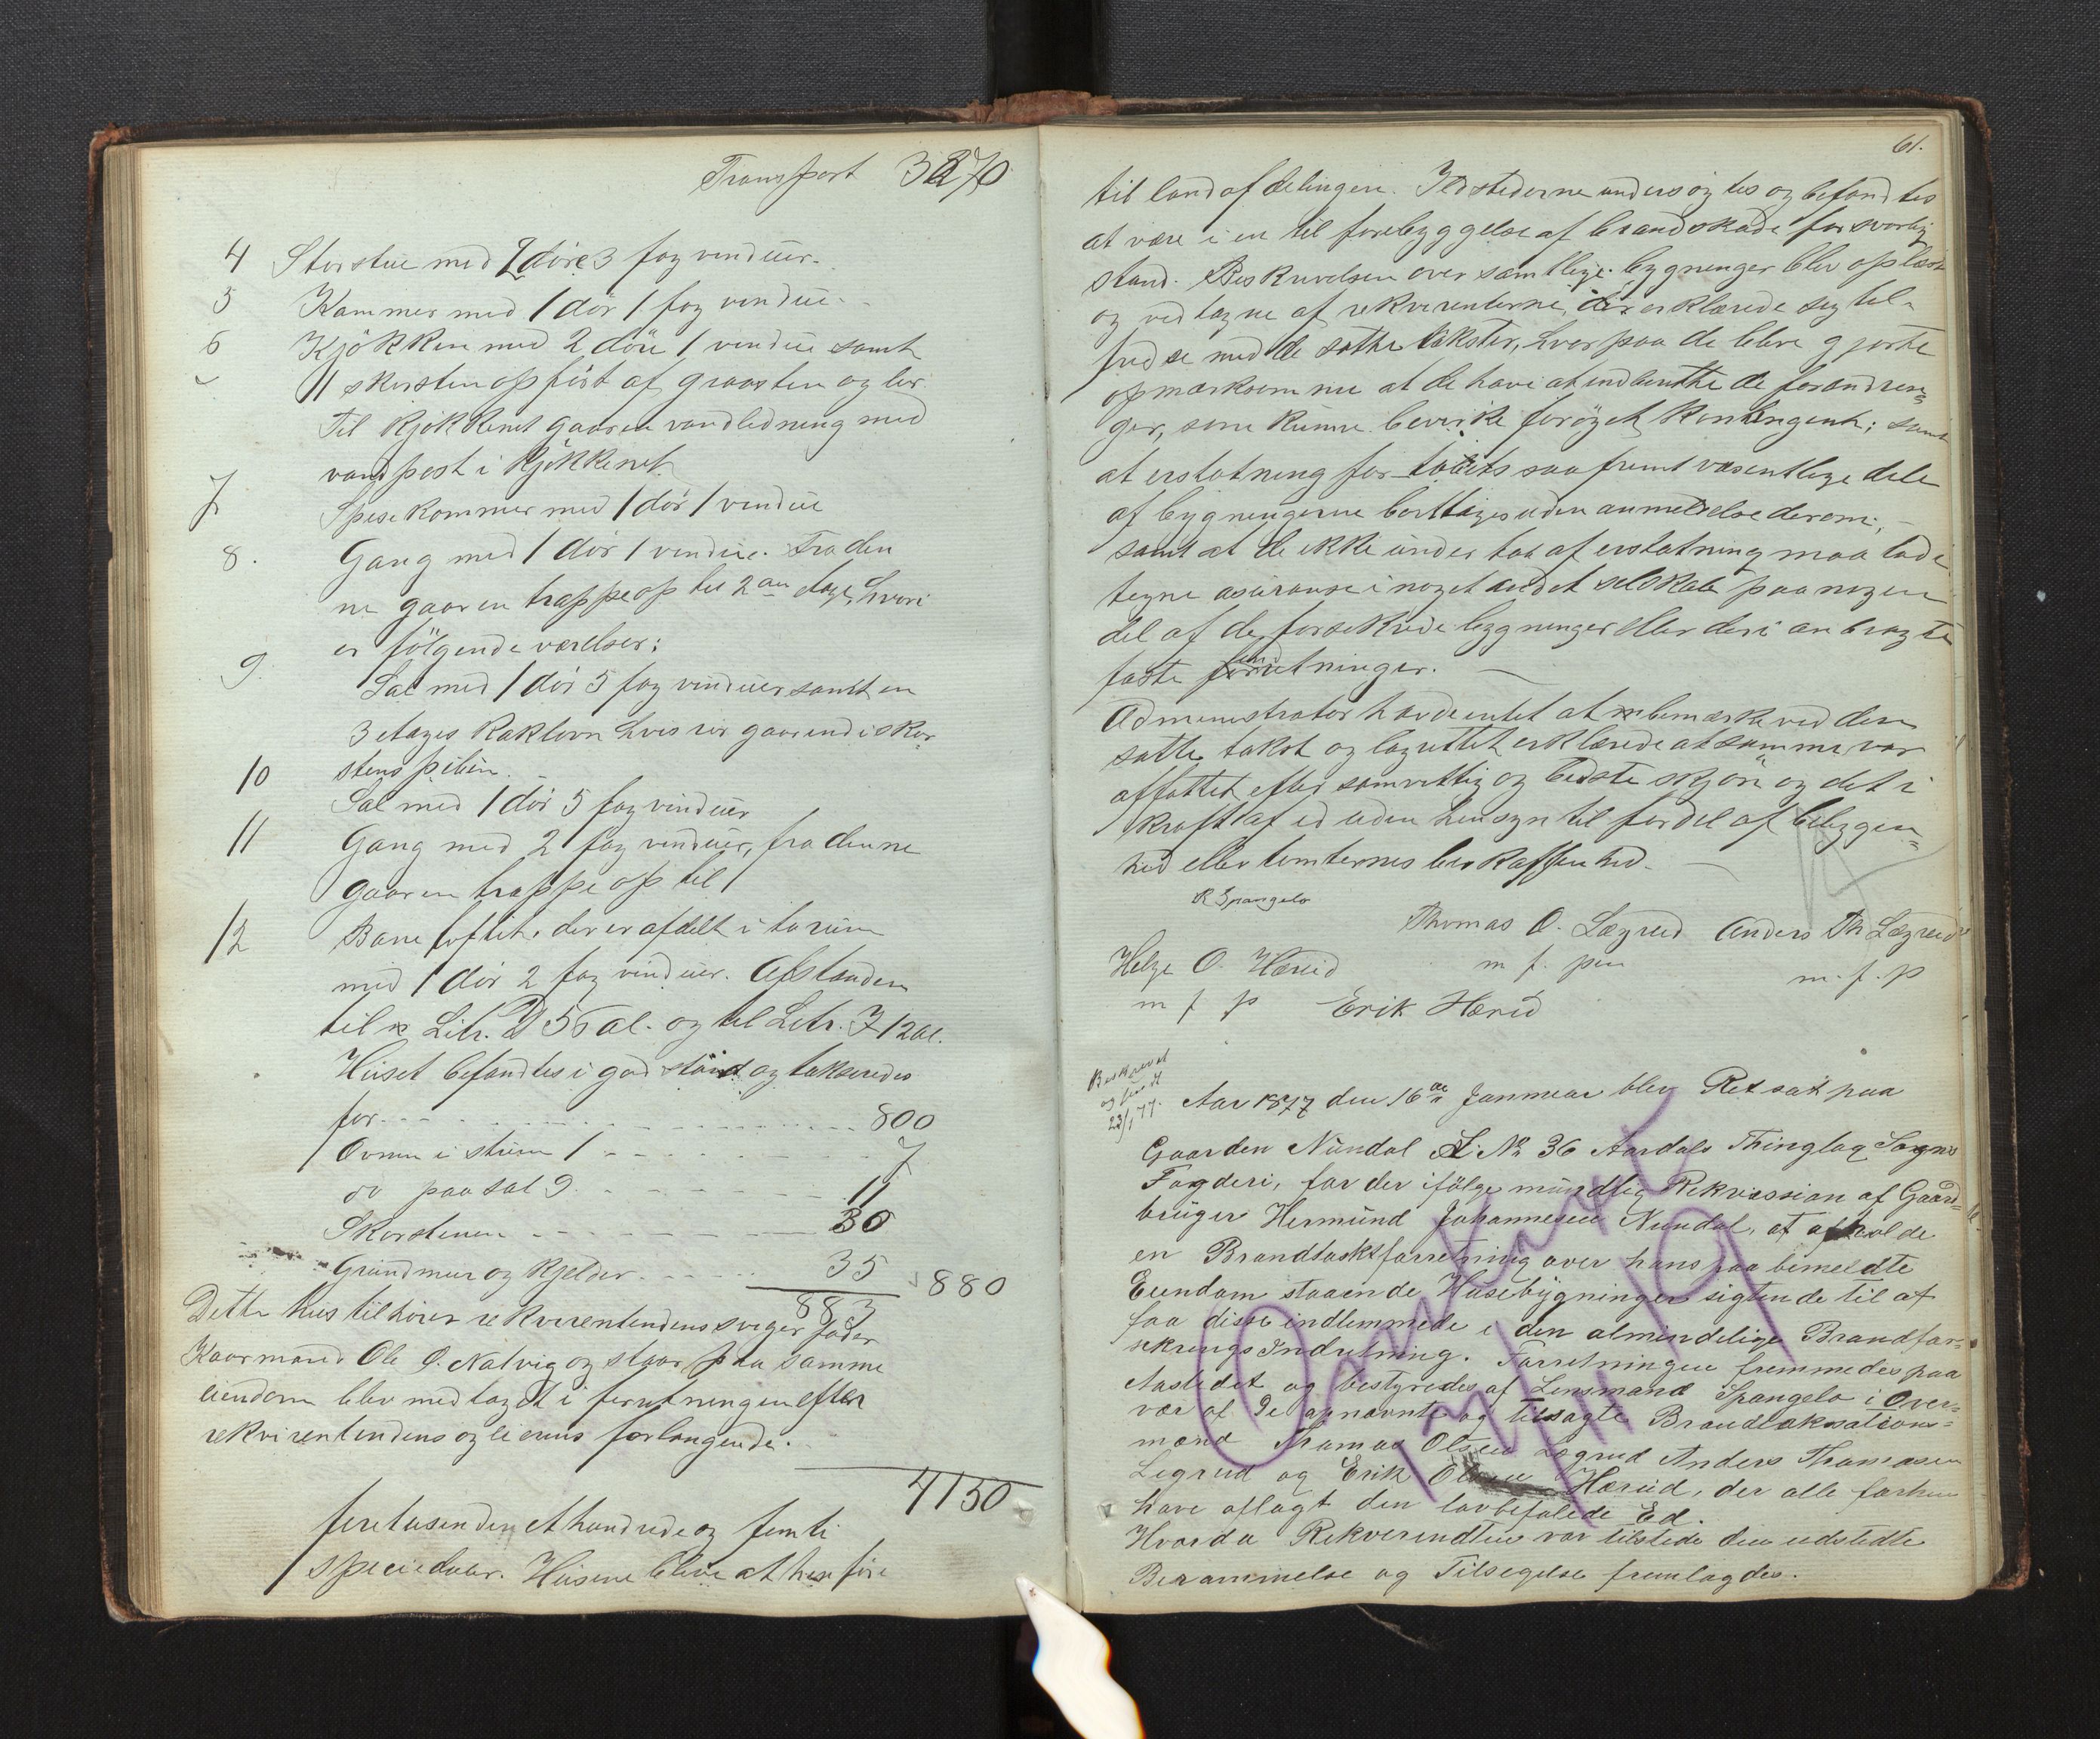 Transport 3270
4 Storstue med 2 döre 3 fag vinduer.
5 Kammer med 1 dör 1 fag vindue.
6 Kjökken med 2 döre 1 vindue samt
1 skorsten opfört af graasten og ler
Til kjökkenet gaar en vandledning med
vandpost i kjökkenet
7 Spisekammer med 1 dör 1 vindue
8. Gang med 1 dör 1 vindue. Fra den
ne gaar en trappe op til 2den etage, hvori
er fölgende værelser:
9. Sal med 1 dör 5 fag vinduer samt en
3 etages kakkelovn hvis rör gaar ind i skor
stenspiben.
10 Sal med 1 dör 5 fag vinduer
11 Gang med 2 fag vinduer, fra denne
gaar en trappe op til
12 Bare loftet, der er afdelt i to rum
med 1 dör 2 fag vinduer. Afstanden
til Litr. D 55 al. og til Litr. F 12 al.
Huset befandtes i god stand og takseredes
for 800
Ovnen i stuen 1 7
do paa sal 9. 11
Skorstenen 30
Grundmur og kjelder 35 880
883
Dette hus tilhörer rekvirentendens svigerfader
Kaarmand Ole O. Natvig og staar paa samme
eiendom blev medtaget i forretningen efter
rekvirentendens og eierens forlangende.
4150
firetusende et hundrede og femti
speciedaler. Husene blive at henföre
61.
til landafdelingen. Ildstederne undersögtes og befandtes
at være i en til forebyggelse af brandskade forsvarlig
stand. Beskrivelsen over samtlige bygninger blev oplæst
og vedtagne af rekvirenterne, der erklærede sig til-
fredse med de satte takster, hvorpaa de bleve gjorte
opmærksomme at de have at indberette de forandrin=
ger, som kunne bevirke foröget kontingent; samt
at erstatning for tabets saafremt væsentlige dele
af bygningerne borttages uden anmeldelse derom;
samt at de ikke under tab af erstatning maa lade
tegne assuranse i noget andet selskab paa nogen
del af de forsekrede bygninger eller deri anbragte
faste indretninger.
Administrator havde intet at bemærke ved den
satte takst og lagrettet erklærede at samme var
affattet efter samvittig og bedste skjön og det i
kraft af ed uden hensyn til fordel af beliggen=
hed eller tomternes beskaffenhed.
R Spangelo
Thomas O. Lægreid Anders Th Lægreid
m f. pen m. f. p
Helge O. Hæreid
m f p Erik Hæreid
Beskrevet
og sendt
23/1 77.
Aar 1877 den 16de Januar blev Ret sat paa
Gaarden Nundal L. No 36 Aardals Thinglag Sogns
Fogderi, for der ifölge mundtlig Rekvisision af Gaard=
bruger Hermund Johannesen Nundal, at afholde
en Brandtakstforretning over hans paa bemeldte
Eiendom staaende Husebygninger sigtende til at
faa disse indlemmede i den almindelige Brandfor=
sekrings Indretning. Forretningen fremmedes paa
Aastedet og bestyredes af Lensmand Spangelo i Over=
vær af de opnævnte og tilsagte Brandtaksations=
mænd Thomas Olsen Lægreid Anders Thomasen
Legreid og Erik Olsen Hæreid, der alle forhen
have aflagt den lovbefalede Ed.
Hvorda Rekverendten var tilstede den udstedte
Berammelse og Tilsegelse fremlagdes.